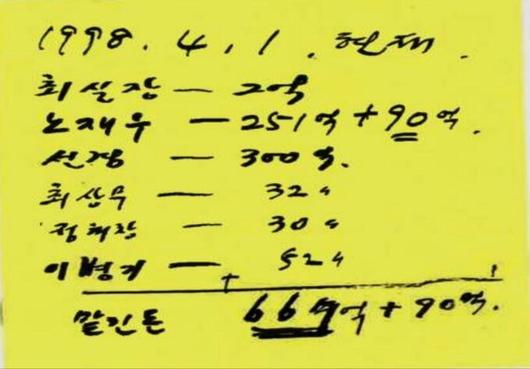 1998. 4. 1. 현재.
최실장 — 2억
노재우 — 251억 + 90억.
선경 — 300억.
최상무 — 32 〃
정회장 — 30 〃
이병기 — 52 〃
맡긴돈 667억 + 90억.